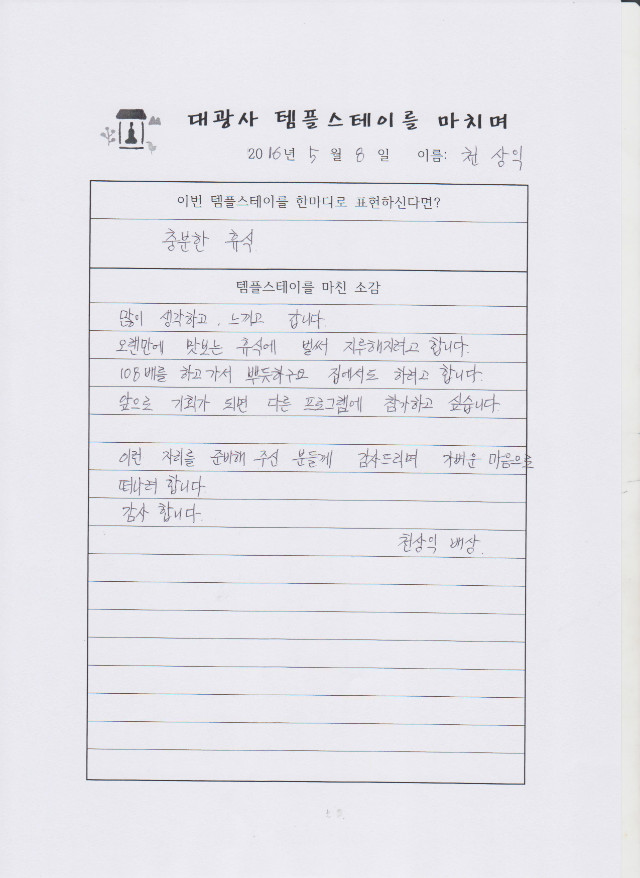 대광사 템플스테이를 마치며
2016년 5월 8일 이름: 천상익
이번 템플스테이를 한마디로 표현하신다면?
충분한 휴식
템플스테이를 마친 소감
많이 생각하고, 느끼고 갑니다.
오랜만에 맛보는 휴식에 벌써 지루해지려고 합니다.
108배를 하고가서 뿌듯하구요 집에서도 하려고 합니다.
앞으로 기회가 되면 다른 프로그램에 참가하고 싶습니다.
이런 자리를 준비해 주신 분들께 감사드리며 가벼운 마음으로
떠나려 합니다.
감사 합니다.
천상익 배상.